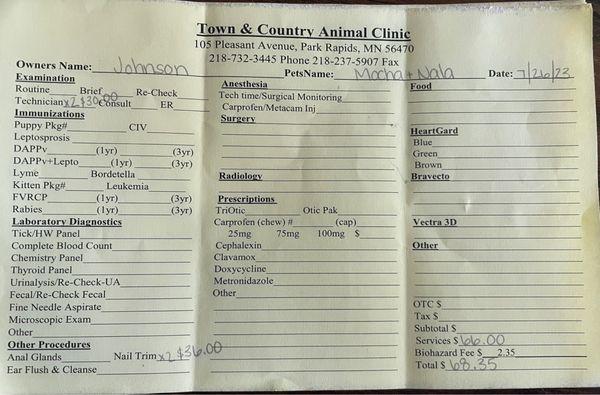 Town & Country Animal Clinic
105 Pleasant Avenue, Park Rapids, MN 56470
218-732-3445 Phone 218-237-5907 Fax
Owners Name: Johnson PetsName: Mocha + Nala Date: 7/26/23
Examination
Routine Brief Re-Check
Technician x2 $30.00 Consult ER
Immunizations
Puppy Pkg# CIV
Leptosprosis
DAPPv (1yr) (3yr)
DAPPv+Lepto (1yr) (3yr)
Lyme Bordetella
Kitten Pkg# Leukemia
FVRCP (1yr) (3yr)
Rabies (1yr) (3yr)
Laboratory Diagnostics
Tick/HW Panel
Complete Blood Count
Chemistry Panel
Thyroid Panel
Urinalysis/Re-Check-UA
Fecal/Re-Check Fecal
Fine Needle Aspirate
Microscopic Exam
Other
Other Procedures
Anal Glands Nail Trim x2 $36.00
Ear Flush & Cleanse
Anesthesia
Tech time/Surgical Monitoring
Carprofen/Metacam Inj
Surgery
Radiology
Prescriptions
TriOtic Otic Pak
Carprofen (chew) # (cap)
25mg 75mg 100mg $
Cephalexin
Clavamox
Doxycycline
Metronidazole
Other
Food
HeartGard
Blue
Green
Brown
Bravecto
Vectra 3D
Other
OTC $
Tax $
Subtotal $
Services $ 66.00
Biohazard Fee $ 2.35
Total $ 68.35